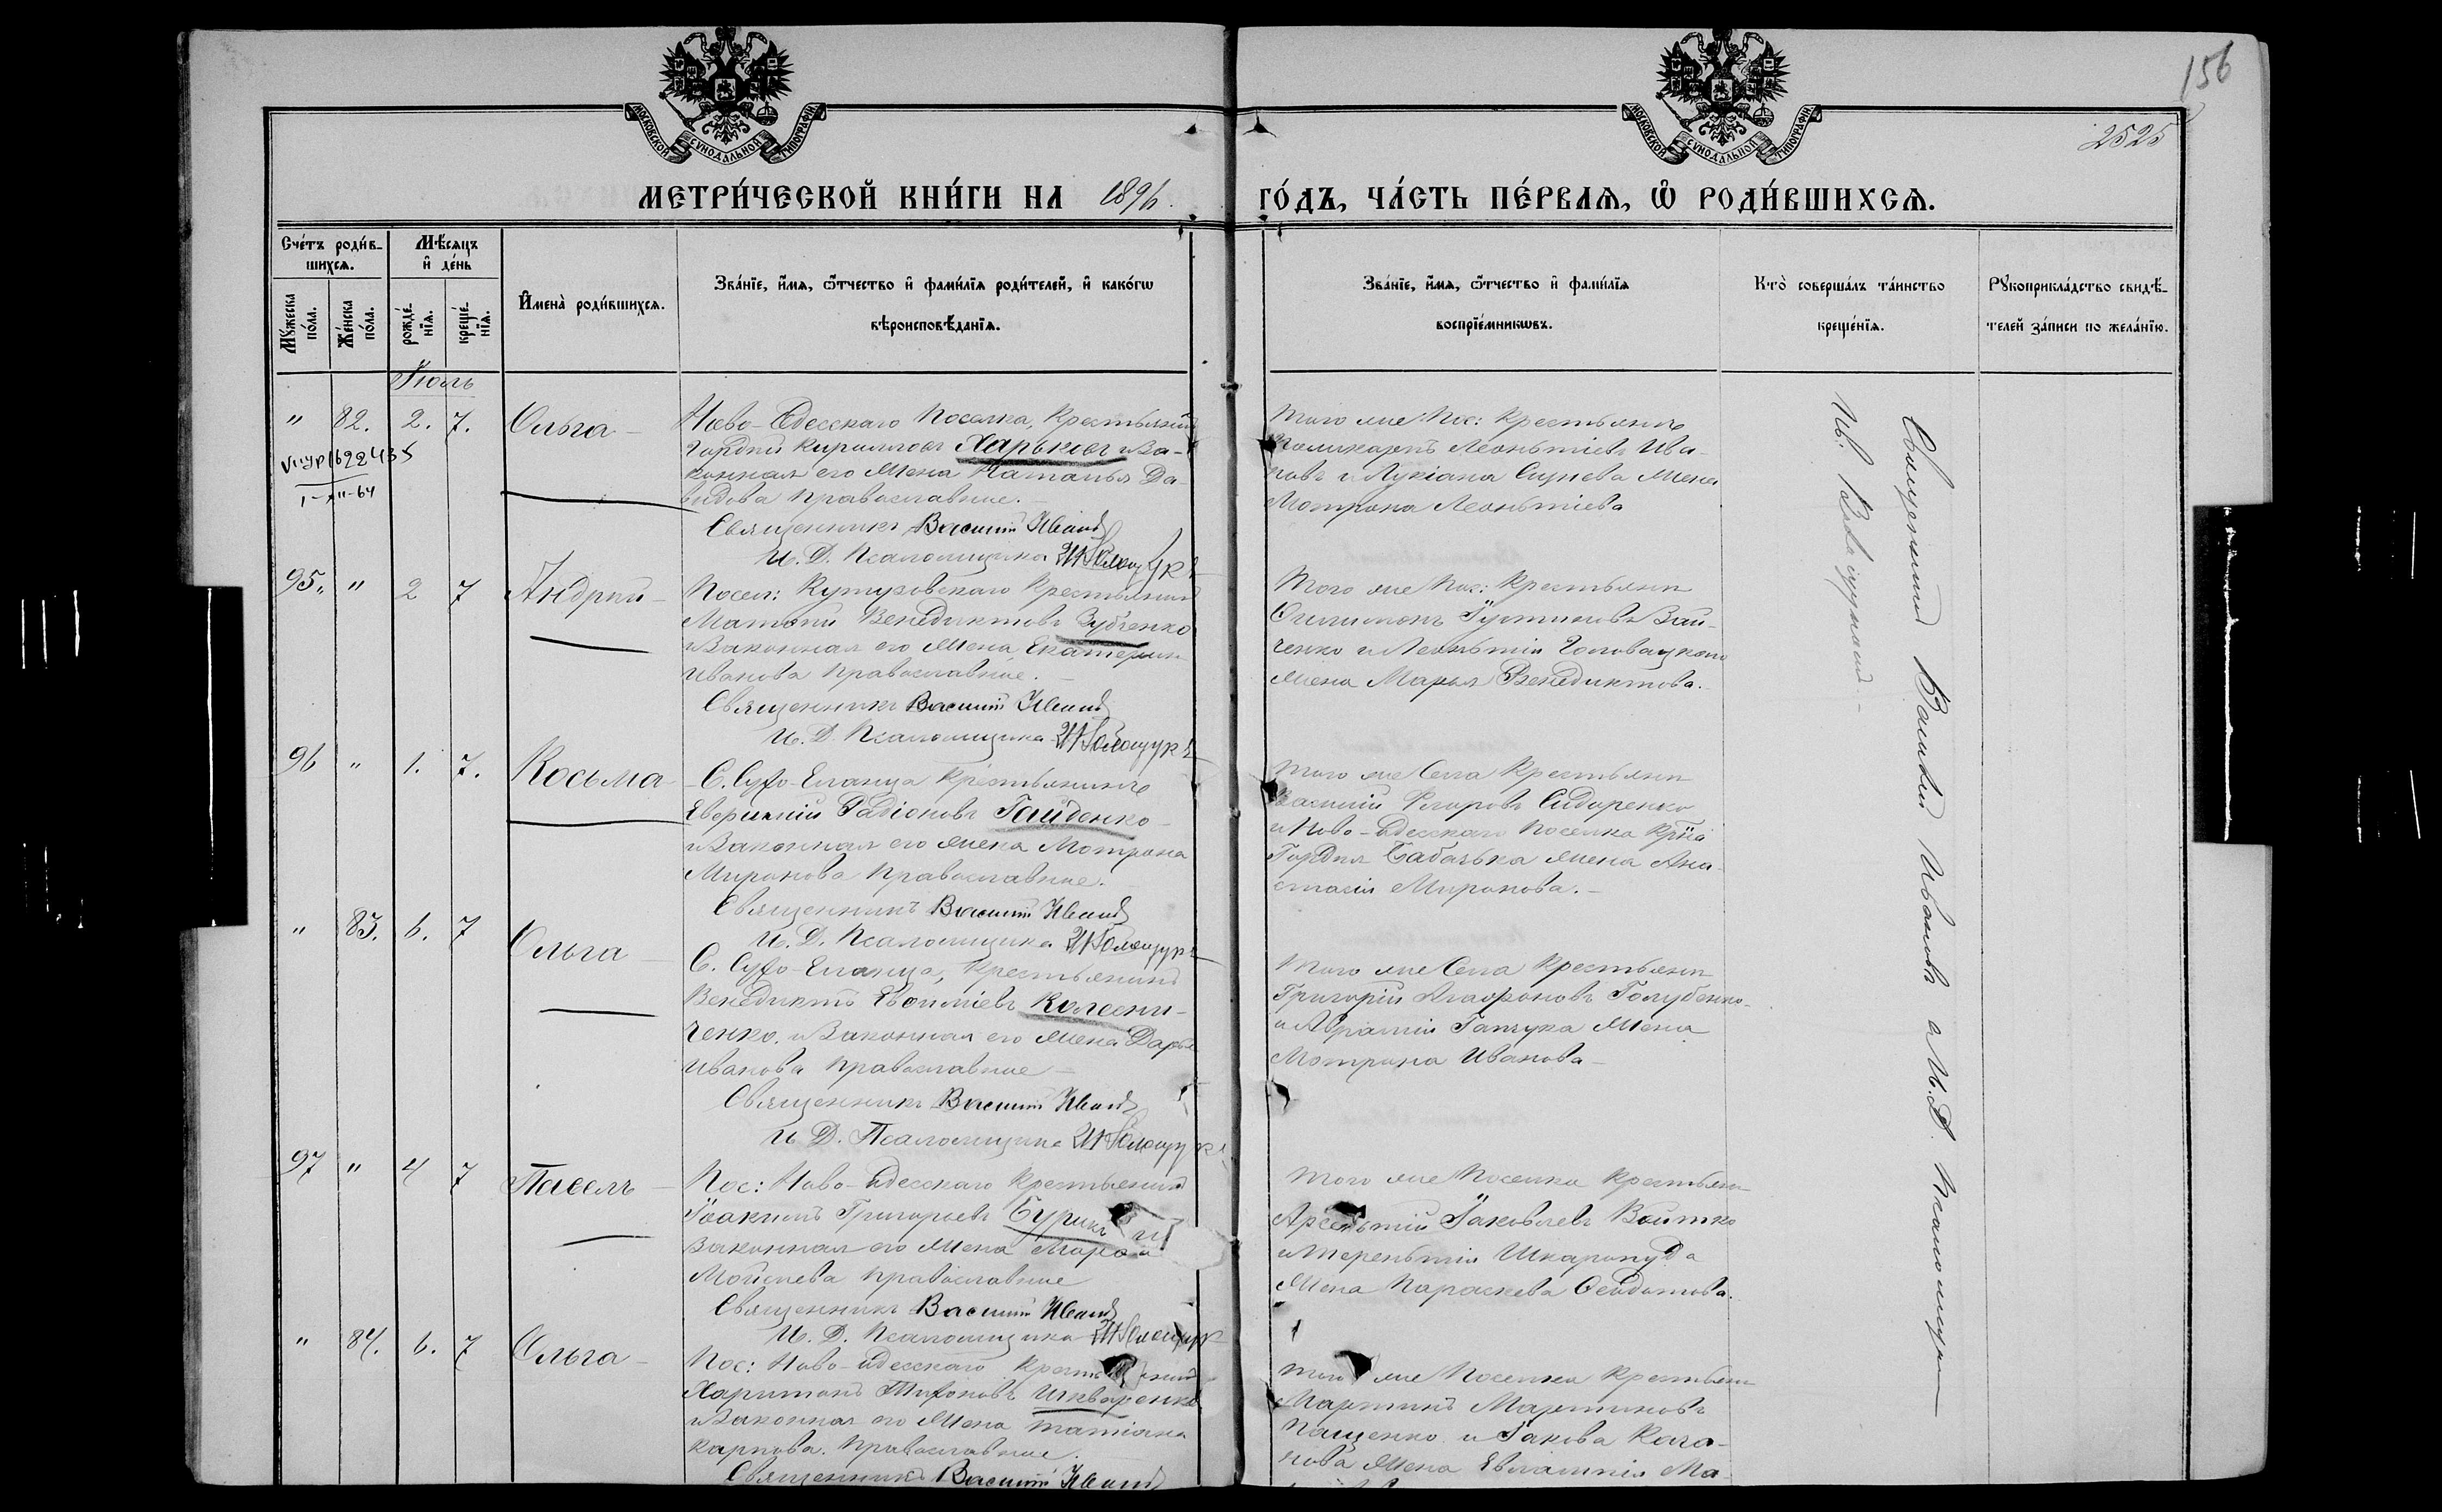 156
2525
МОСКОВСКОЙ СѴНОДАЛЬНОЙ ТИПОГРАФІИ
МОСКОВСКОЙ СѴНОДАЛЬНОЙ ТИПОГРАФІИ
МЕТРИ́ЧЕСКОЙ КНИ́ГИ НА 1896. ГО́ДЪ, ЧА́СТЬ ПЕ́РВАЯ, Ѡ РОДИ́ВШИХСЯ.
Сче́тъ роди́в-
шихся.
Мꙋ́жеска по́ла.
Же́нска по́ла.
Мѣ́сяцъ и҆ де́нь
рожде́-нїя.
креще́-нїя.
И҆мена̀ роди́вшихся.
Зва́нїе, и҆́мя, ѻ҆́тчество и҆ фами́лїя роди́телей, и҆ како́гѡ
вѣроисповѣ́данїя.
Зва́нїе, и҆́мя, ѻ҆́тчество и҆ фами́лїя
воспрїе́мникѡвъ.
Кто̀ соверша́лъ та́инство
креще́нїя.
Рꙋкоприкла́дство свидѣ́-
телей за́писи по жела́нїю.
Іюль
" 82. 2. 7. Ольга
Ново-Одесскаго Поселка, Крестьянинъ
Гордѣй Кирилловъ Харьковъ и За-
конная его Жена Наталья Да-
видова Православные.
Священникъ Василій Ивановъ
И. Д. Псаломщика
Того же Пос: Крестьянинъ
Поликарпъ Леонтьіевъ Ива-
новъ и Лукіана Жена
Мотрона Леонтьіева
95. " 2 7 Андрей
Посел: Кутузовскаго Крестьянинъ
Матѳей Венедиктовъ Зубченко
и Законная его Жена Екатерина
Иванова Православные.
Священникъ Василій Ивановъ
И. Д. Псаломщика
Того же Пос: Крестьянинъ
Филимонъ Іустиновъ Зай-
ченко и Леонтьія Головацкаго
Жена Марья Венедиктова.
96 " 1. 7. Косьма
С. Сухо-Еланца Крестьянинъ
Евфимій Радіоновъ Гайденко
и Законная его Жена Мотрона
Миронова Православные.
Священникъ Василій Ивановъ
И. Д. Псаломщика
Того же Села Крестьянинъ
Василій Сидоренко
и Ново-Одесскаго Поселка
Гордѣя Жена Ана-
стасія Миронова.
" 83. 6. 7 Ольга
С. Сухо-Еланца, Крестьянинъ
Венедиктъ Евѳиміевъ Колесни-
ченко. и Законная его Жена Дарья
Иванова Православные
Священникъ Василій Ивановъ
И. Д. Псаломщика
Того же Села Крестьянинъ
Григорій Агафоновъ Голубенко
и Аврамія Гапчука Жена
Мотрона Иванова
97 " 4 7 Павелъ
Пос: Ново-Одесскаго Крестьянинъ
Іоакимъ Григорьевъ Бурикъ и
Законная его Жена Марѳа
Мойсеева Православные
Священникъ Василій Ивановъ
И. Д. Псаломщика
Того же Поселка Крестьянинъ
Арсентьій Іаковлевъ Войтко
и Терентьія Шкарупуда
Жена Параскева Ѳеодотова.
" 84. 6. 7 Ольга
Пос: Ново-Одесскаго Крестьянинъ
Харитонъ Тихоновъ Шкваренко
и Законная его Жена Татіана
Карпова. Православные.
Священникъ Василій Ивановъ
Того же Поселка Крестьянинъ
Мартинъ Мартиновъ
Пащенко и Іакова Кача-
нова Жена Евлампія Ма-
Священникъ Василій Ивановъ и И. Д. Псаломщика